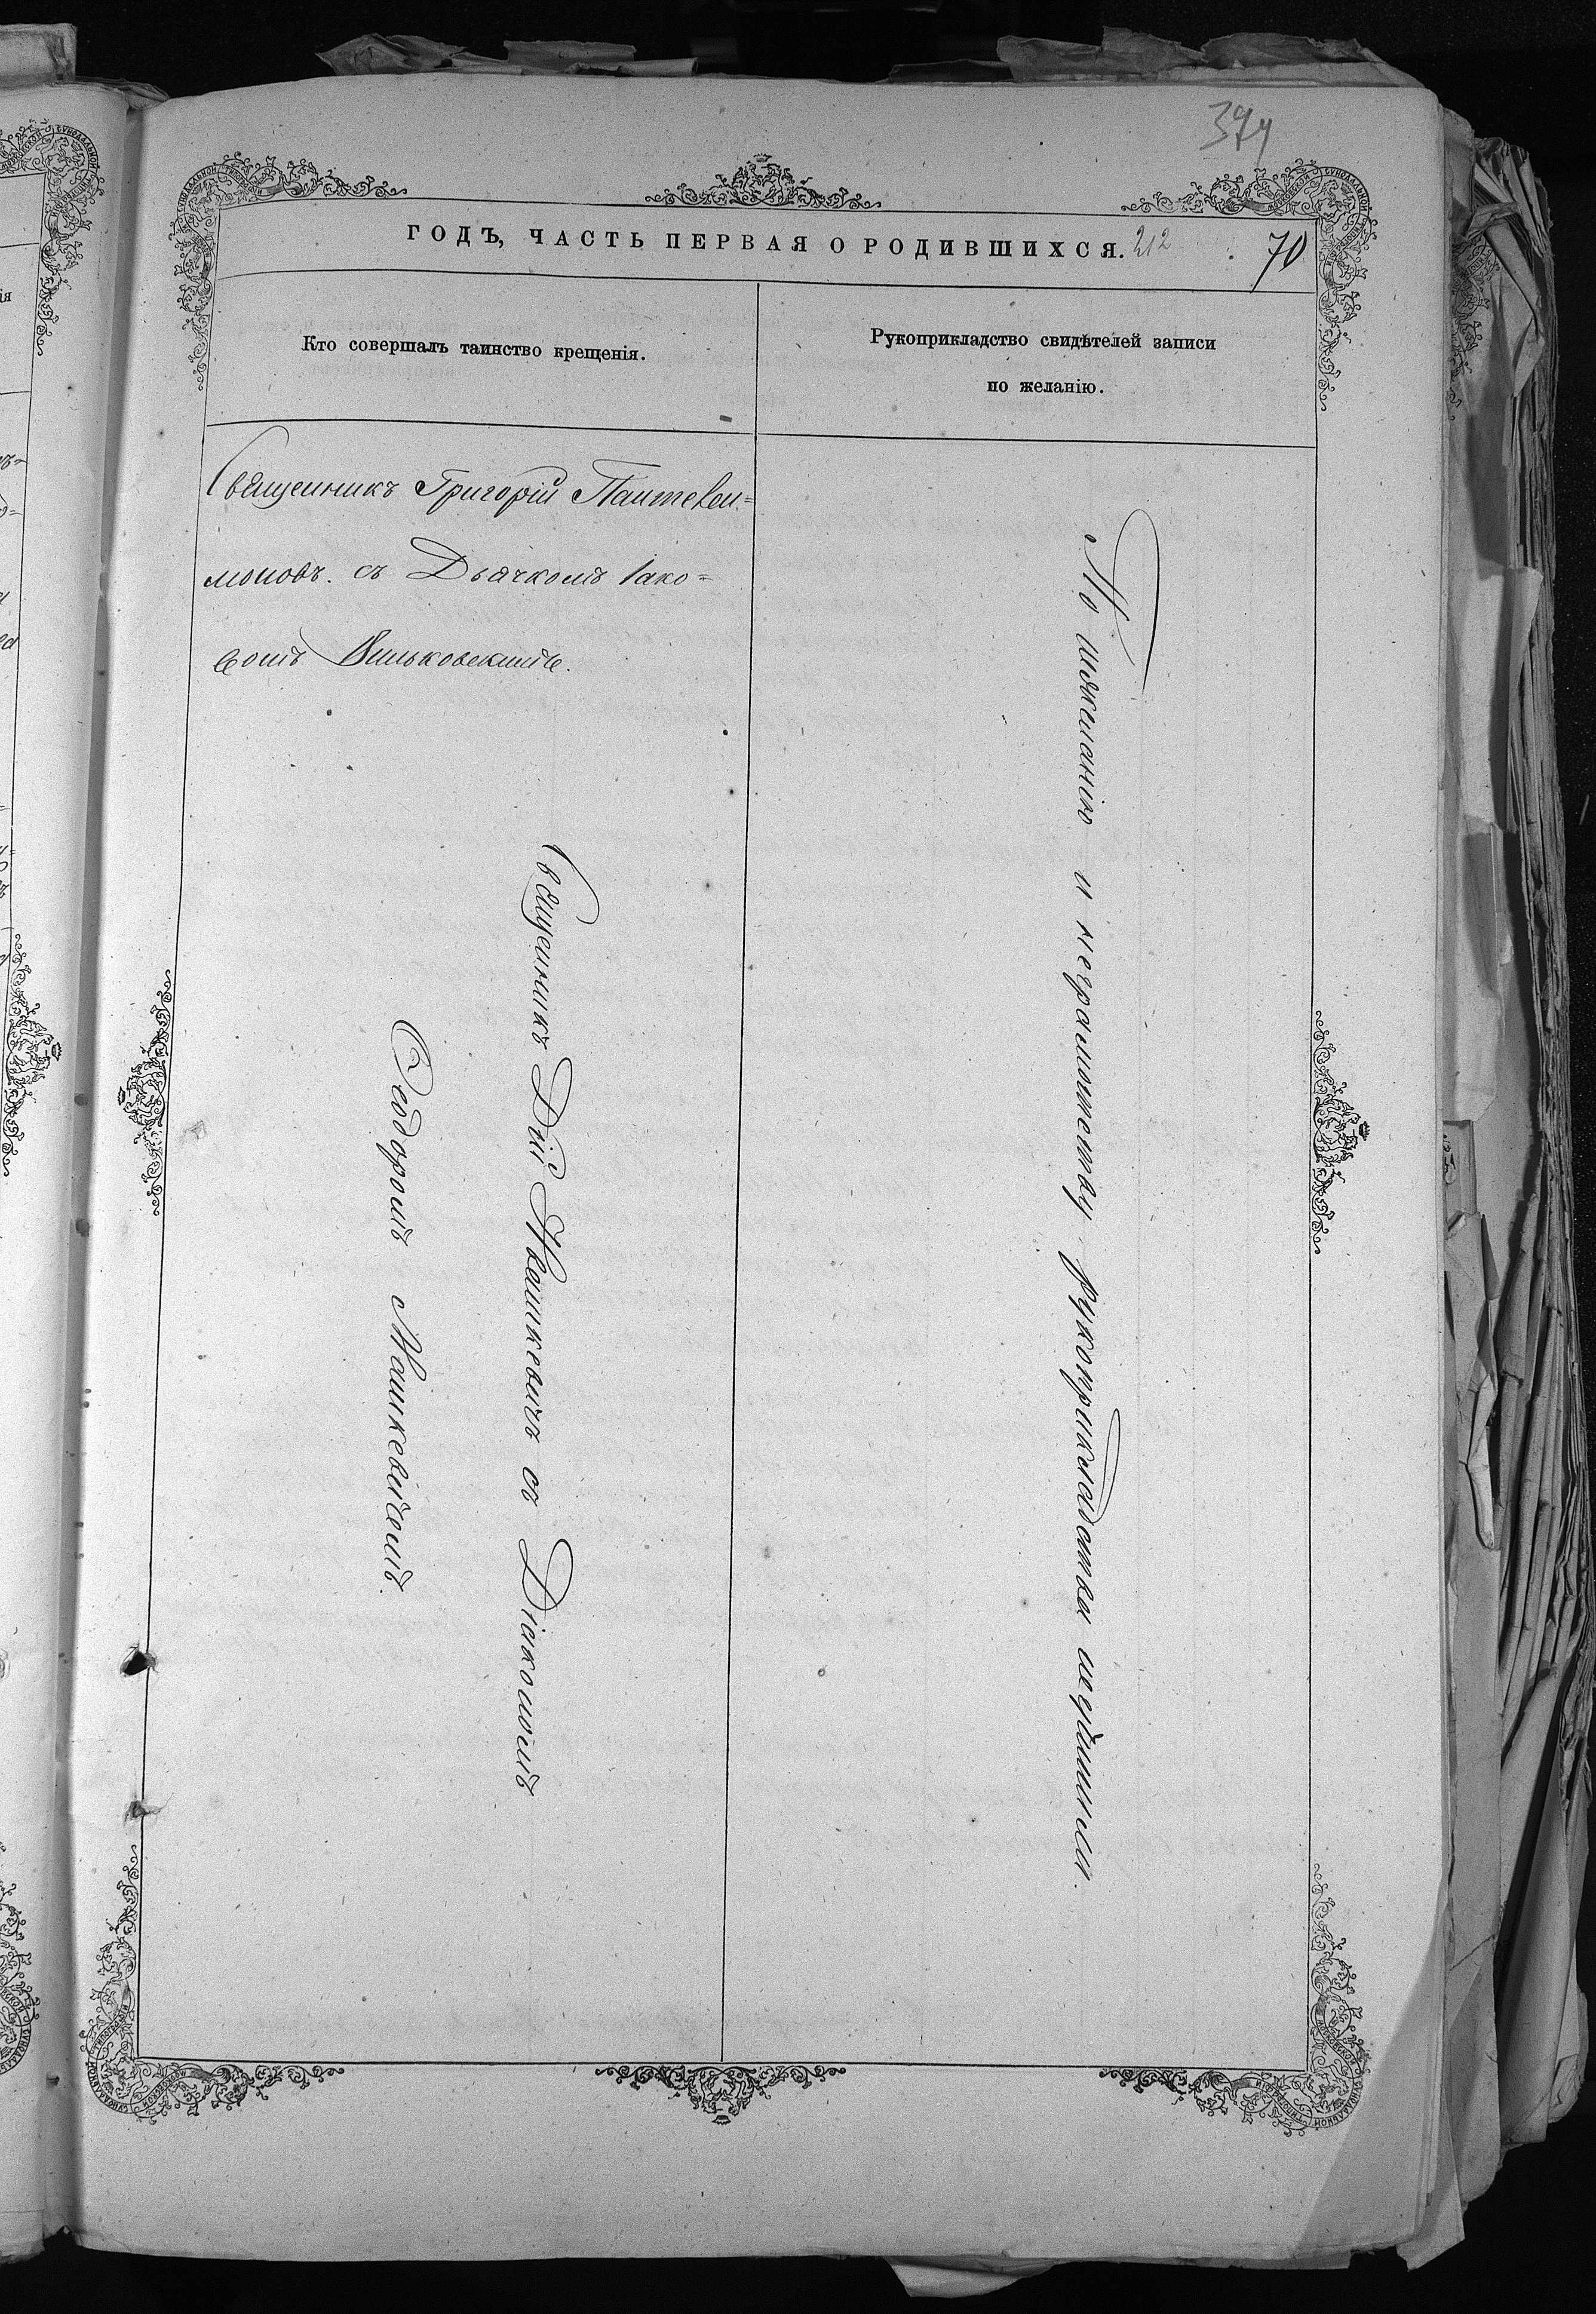 ГОДЪ, ЧАСТЬ ПЕРВАЯ О РОДИВШИХСЯ. 212 70
Кто совершалъ таинство крещенія.
Рукоприкладство свидѣтелей записи
по желанію.
Священникъ Григорій Пантелеи=
моновъ. съ Дьячкомъ Іако=
вомъ Вильковскимъ.
Священникъ Дій Ивашкевичъ съ Діакономъ
Ѳеодоромъ Машкевичемъ.
По нежеланію и неграмотству рукоприкладства неучинили.